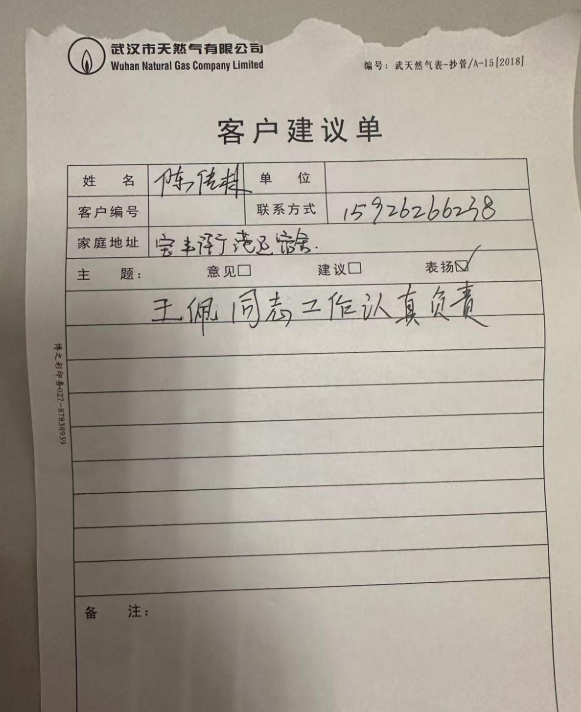 武汉市天然气有限公司
Wuhan Natural Gas Company Limited
编号：武天然气表-抄管/A-15[2018]
客户建议单
姓 名 陈 单 位
客户编号 联系方式 15926266238
家庭地址 宝丰 宿舍.
主 题： 意见□ 建议□ 表扬☑
王佩同志工作认真负责
027-87838939
备 注：